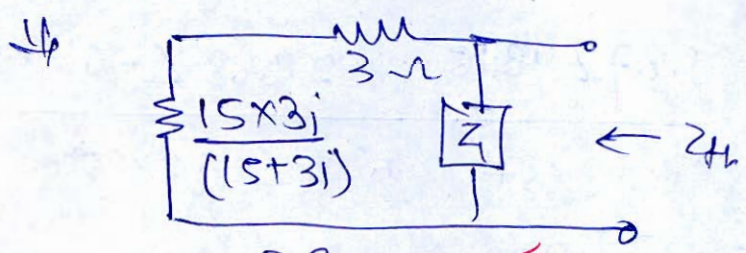 3 Ω
15×3j
(15+3j)
Z1
← Zth